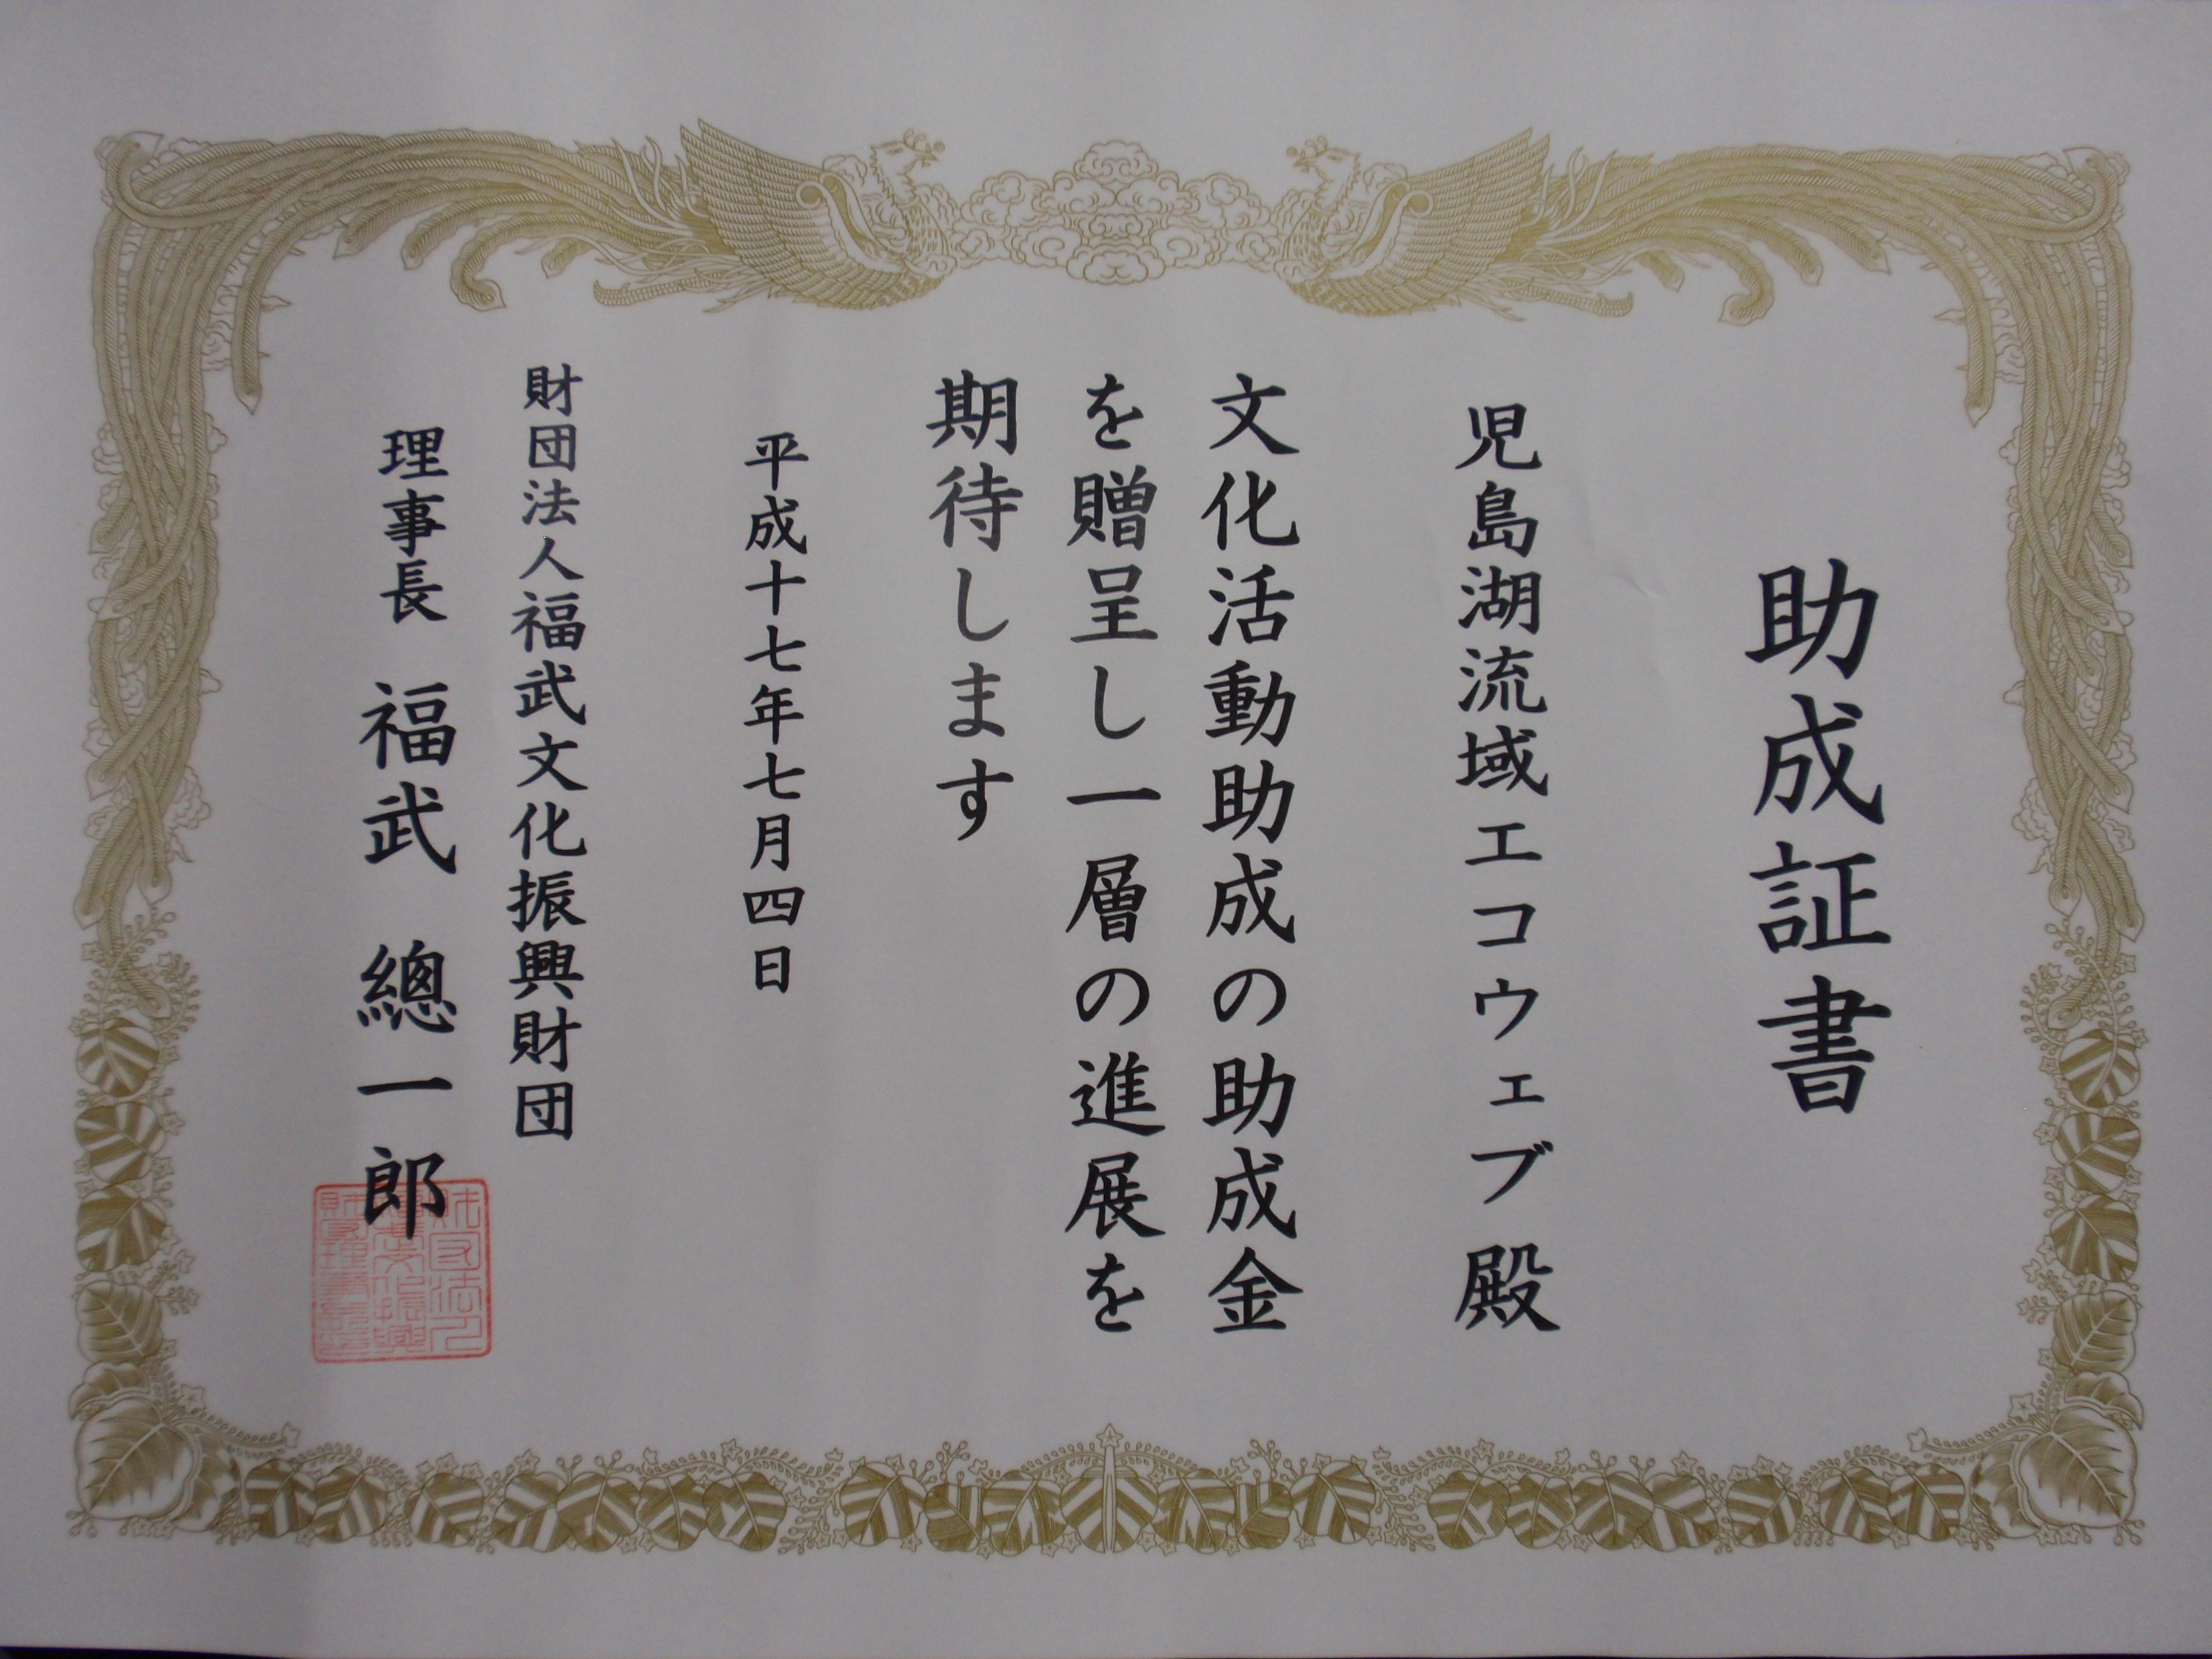 助成証書
児島湖流域エコウェブ殿
文化活動助成の助成金
を贈呈し一層の進展を
期待します
平成十七年七月四日
財団法人福武文化振興財団
理事長 福武 總一郎